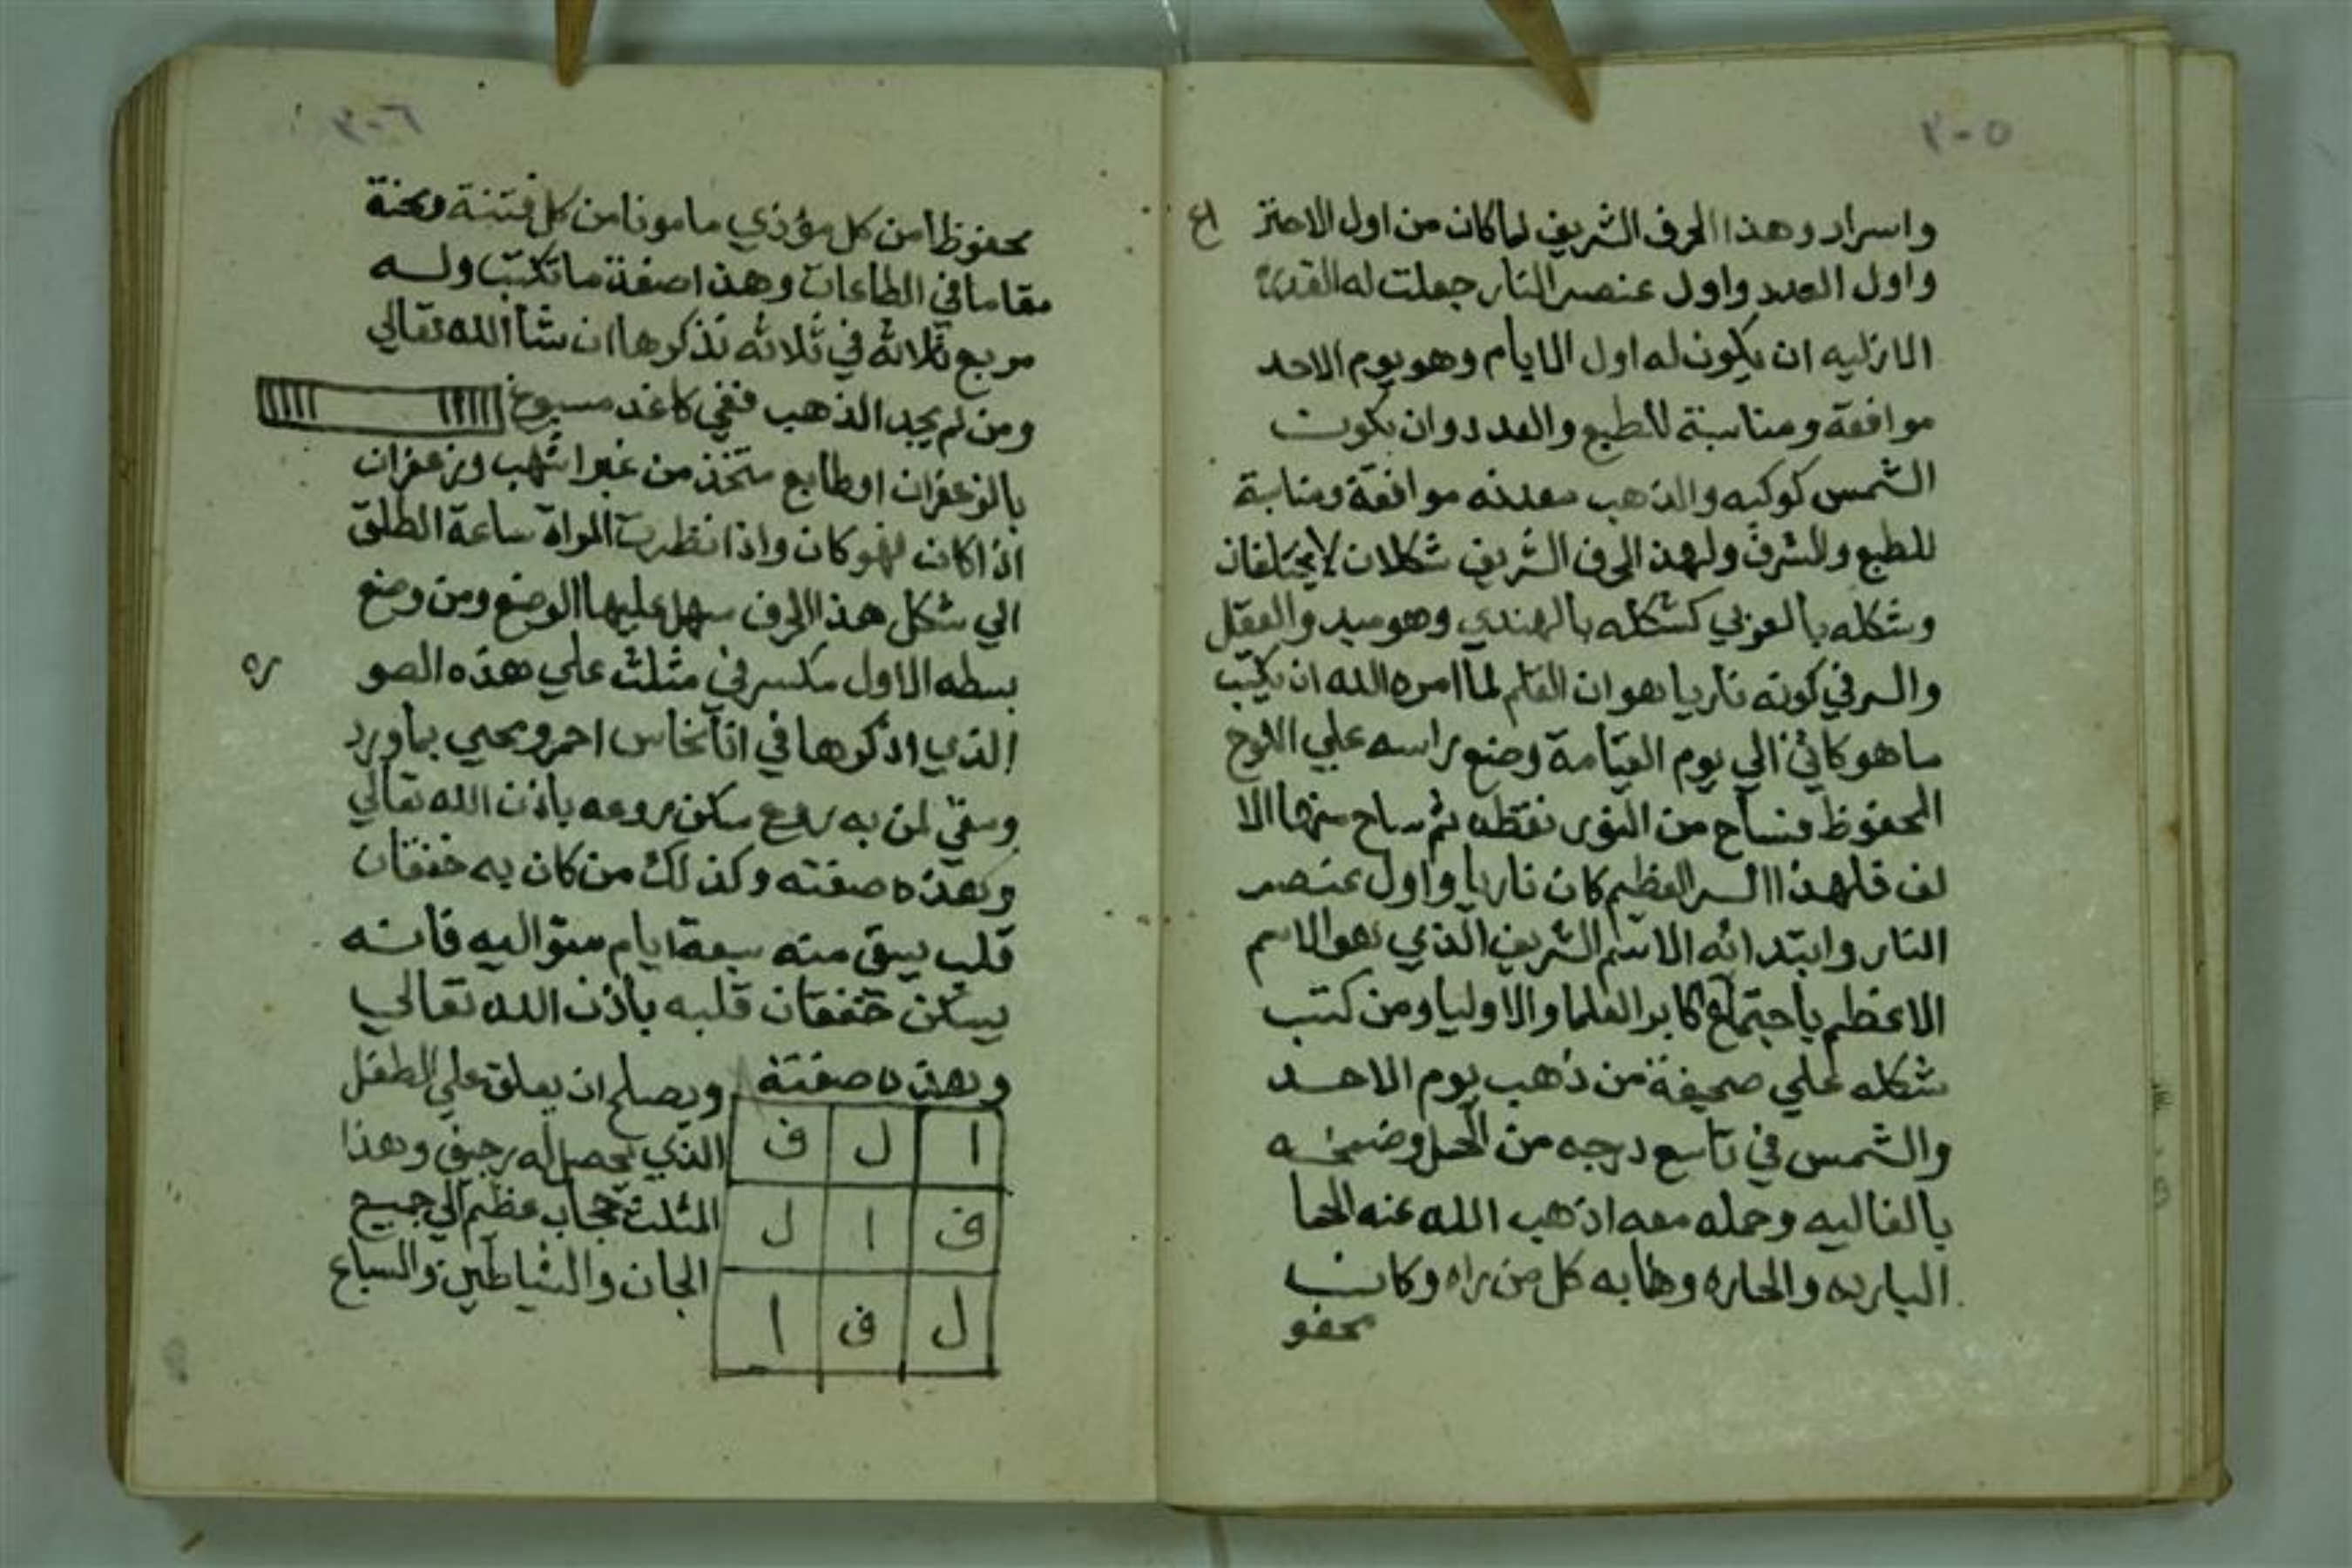 ٣٠٥
واسرار وهذا الحرف الشريف لما كان من اول الاختر اع
واول العدد واول عنصر النار جعلت له القدرة
الازليه ان يكون له اول الايام وهو يوم الاحد
موافقة ومناسبة للطبع والعدد وان يكون
الشمس كوكبه والذهب معدنه موافقة ومناسبة
للطبع وللشرف ولهذ الحرف الشريف شكلان لا يختلفان
وشكله بالعربي كشكله بالهندي وهو والعقل
والسر في كونه ناريا هو ان القلم لما امره الله ان يكتب
ما هو كائن الي يوم القيامة وضع راسه علي اللوح
المحفوظ فساح من النور نقطه ثم ساح منها الا
لف فلهذا السر العظيم كان ناريا واول عنصر
النار وابتدائه الاسم الشريف الذي هو الاسم
الاعظم باجتماع اكابر العلما والاوليا ومن كتب
شكله علي صحيفة من ذهب يوم الاحد
والشمس في تاسع درجه من الحمل وضمخه
بالغاليه وحمله معه اذهب الله عنه الحما
البارده والحاره وهابه كل من راه وكان
محفو
٣٠٦
محفوظا من كل مؤذي مامونا من كل فتنة ومحنة
مقاما في الطاعات وهذا صفة ما تكتب وله
مربع ثلاثه في ثلاثه نذكرها ان شا الله تعالي
ومن لم يجد الذهب ففي كاغد مسبوغ
بالزعفران او طابع متخذ من غبر اشهب وزعفران
اذا كان فهو كان واذا نظرت المراة ساعة الطلق
الي شكل هذا الحرف سهل عليها الوضع ومن وضع
بسطه الاول مكسر في مثلث علي هذه الصو ره
الذي اذكرها في انا نحاس احمر ومحي بماورد
وسقي لمن به روع سكن روعه باذن الله تعالي
وهذه صفته وكذلك من كان به خفقان
قلب يسقي منه سبعة ايام متواليه فانه
يسكن خفقان قلبه باذن الله تعالي
وهذه صفتة
ا ل ف
ف ا ل
ل ف ا
ويصلح ان يعلق علي الطفل
الذي يحصل له رجيف وهذا
المثلث حجاب عظيم الي جميع
الجان والشياطين والسباع